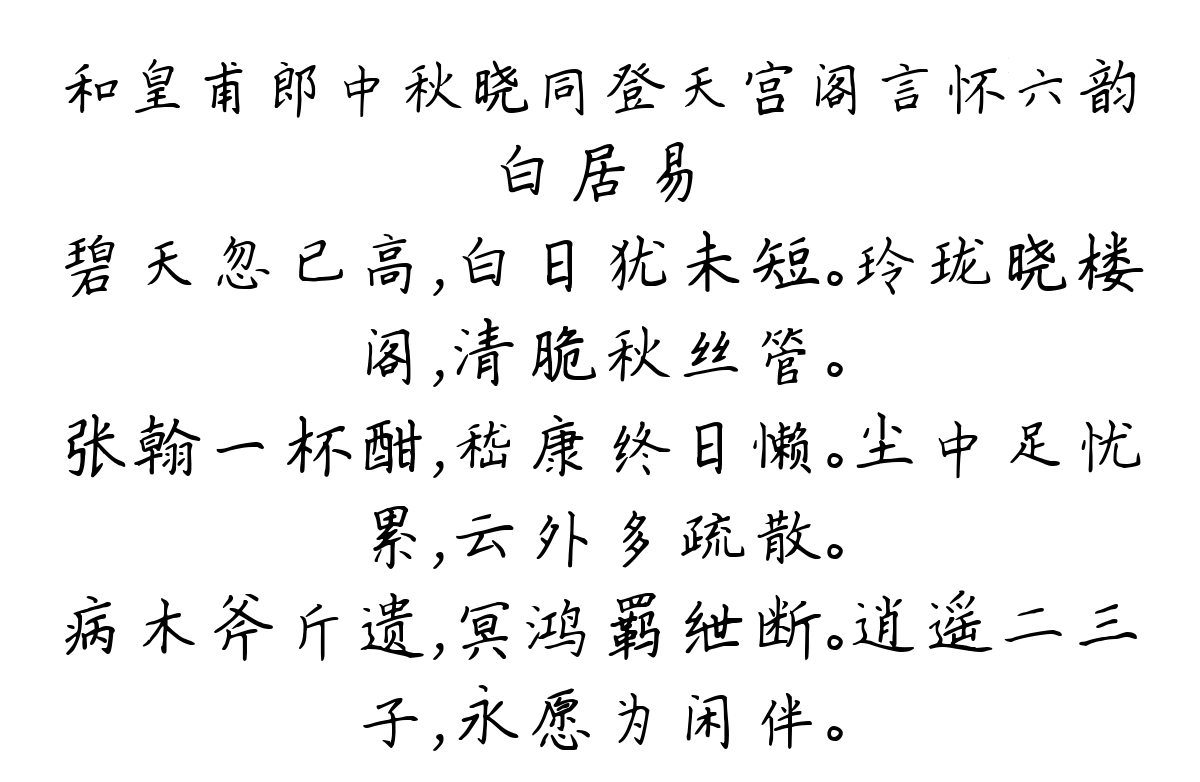 和皇甫郎中秋晓同登天宫阁言怀六韵
白居易
碧天忽已高,白日犹未短。玲珑晓楼
阁,清脆秋丝管。
张翰一杯酣,嵇康终日懒。尘中足忧
累,云外多疏散。
病木斧斤遗,冥鸿羁绁断。逍遥二三
子,永愿为闲伴。